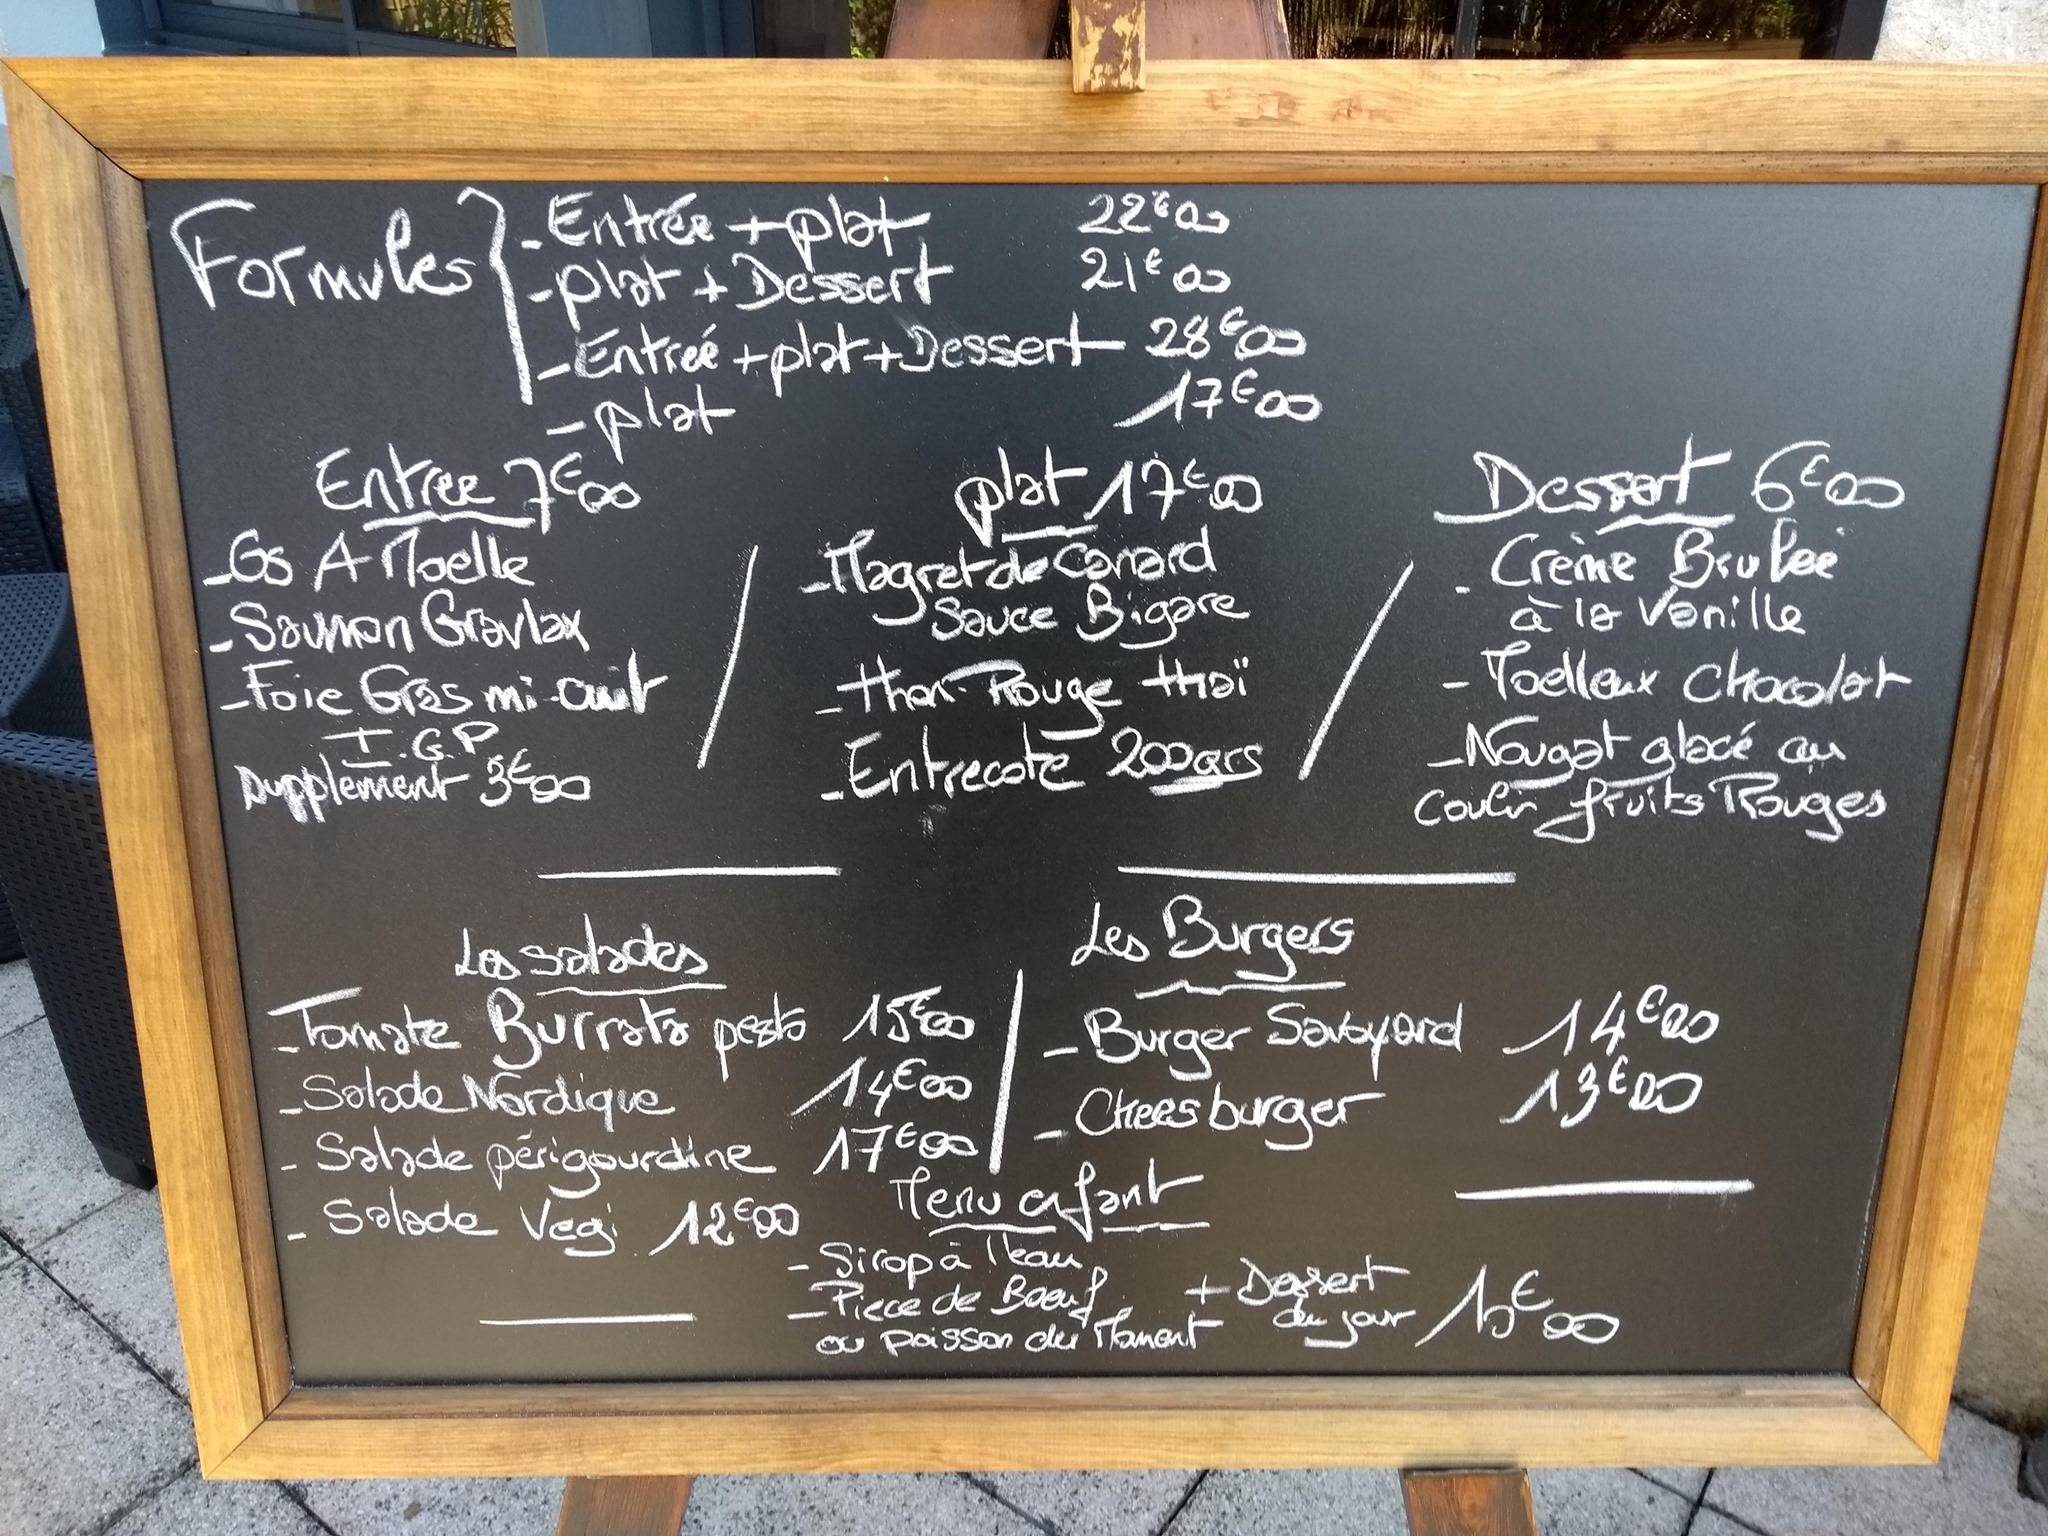 Formules
- Entrée + plat 22€00
- plat + Dessert 21€00
- Entreé + plat + Dessert 28€00
- plat 17€00
Entree 7€00
- Os A Moelle
- Saumon Gravlax
- Foie Gras mi-cuit
I.G.P
supplement 3€00
plat 17€00
- Magret de Canard
Sauce Bigare
- thon Rouge thaï
- Entrecote 200grs
Dessert 6€00
- Crème Brulée
à la Vanille
- Moelleux Chocolat
- Nougat glacé au
Coulin fruits Rouges
Les salades
- Tomate Burrata pesto 15€00
- Salade Nordique 14€00
- Salade périgourdine 17€00
- Salade Vegi 12€00
Les Burgers
- Burger Savoyard 14€00
- Cheesburger 13€00
Menu enfant
- Sirop à l'eau
- Piece de Boeuf
ou poisson du Moment
+ Dessert
du jour